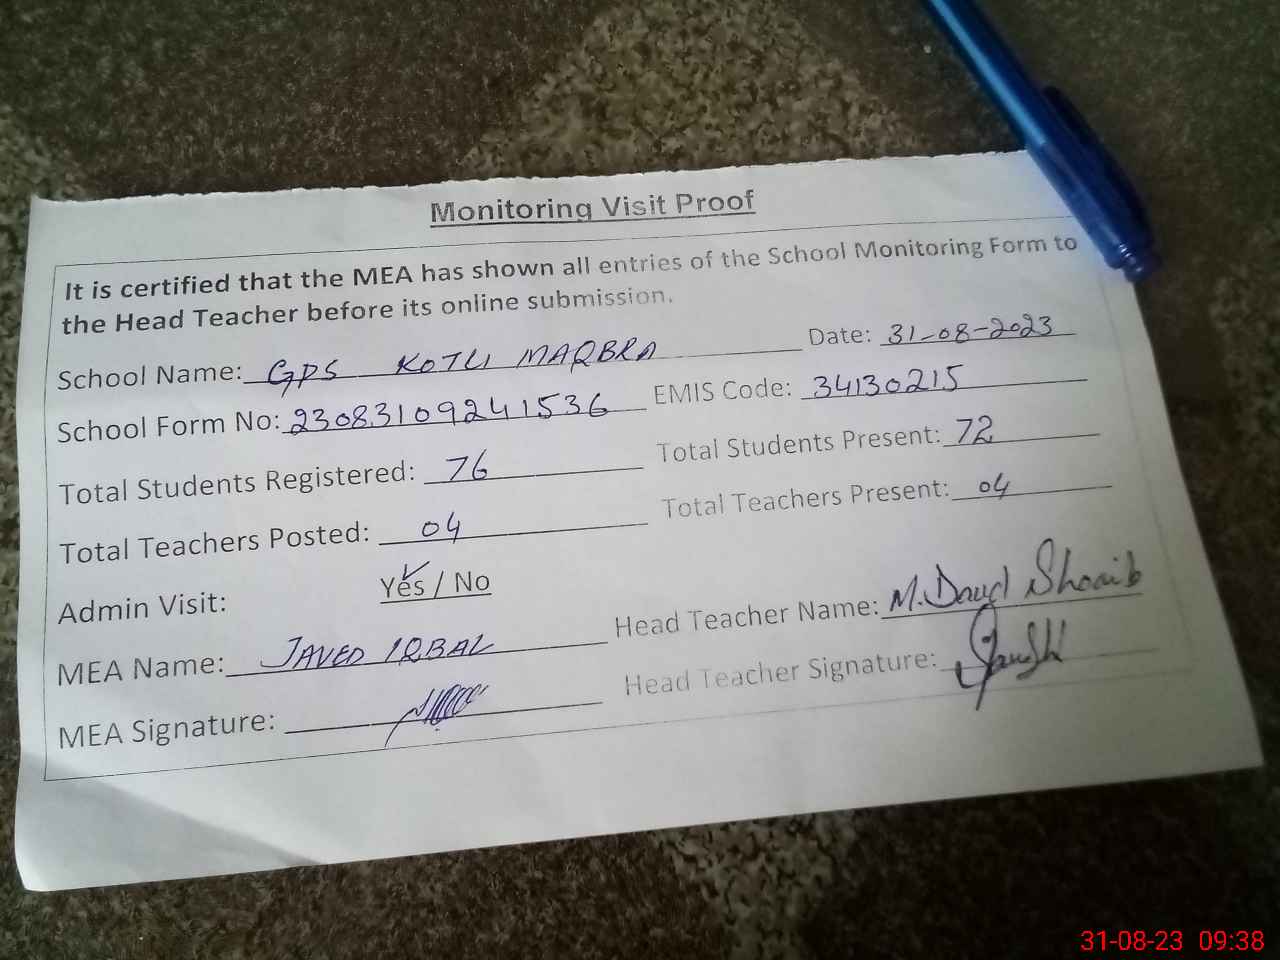 Monitoring Visit Proof
It is certified that the MEA has shown all entries of the School Monitoring Form to
the Head Teacher before its online submission.
School Name: GPS KOTLI MAQBRA Date: 31-08-2023
School Form No: 23083109241536 EMIS Code: 34130215
Total Students Registered: 76 Total Students Present: 72
Total Teachers Posted: 04 Total Teachers Present: 04
Admin Visit: Yes / No
MEA Name: JAVED IQBAL Head Teacher Name: M. Daud Shoaib
MEA Signature: Head Teacher Signature:
31-08-23 09:38